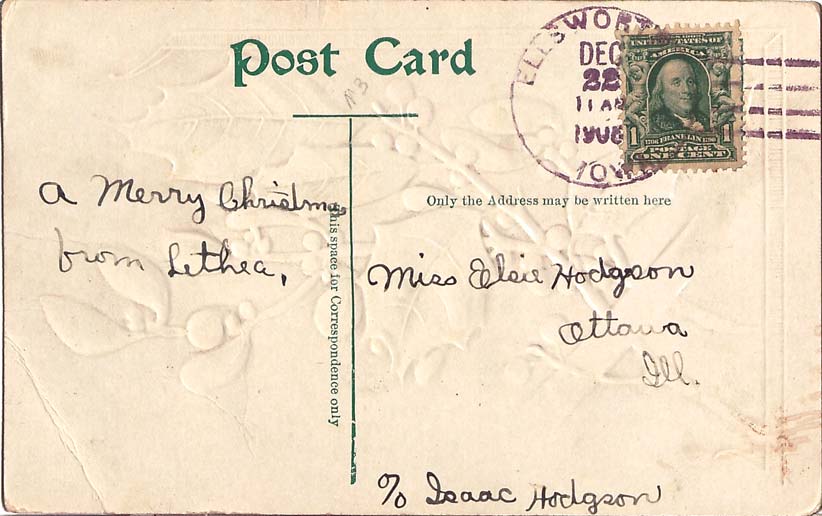 Post Card
ELLSWORTH
DEC
22
11 AM
1908
IOWA
UNITED STATES OF
AMERICA
1 1
1706 FRANKLIN 1790
POSTAGE
ONE CENT
A Merry Christmas
from Lethea,
This space for Correspondence only
Only the Address may be written here
Miss Elsie Hodgson
Ottawa
Ill.
% Isaac Hodgson